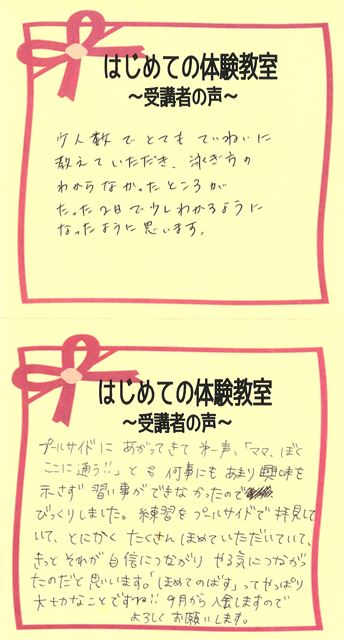 はじめての体験教室
～受講者の声～
少人数でとてもていねいに
教えていただき、泳ぎ方の
わからなかったところが
たった2日で少しわかるように
なったように思います。
はじめての体験教室
～受講者の声～
プールサイドにあがってきて第一声、「ママ、ぼく
ここに通う!!」と 何事にもあまり興味を
示さず習い事ができなかったので
びっくりしました。練習をプールサイドで拝見して
いて、とにかくたくさんほめていただいていて、
きっとそれが自信につながりやる気につながっ
たのだと思います。「ほめてのばす」ってやっぱり
大切なことですね!! 9月から入会しますので
よろしくお願いします。